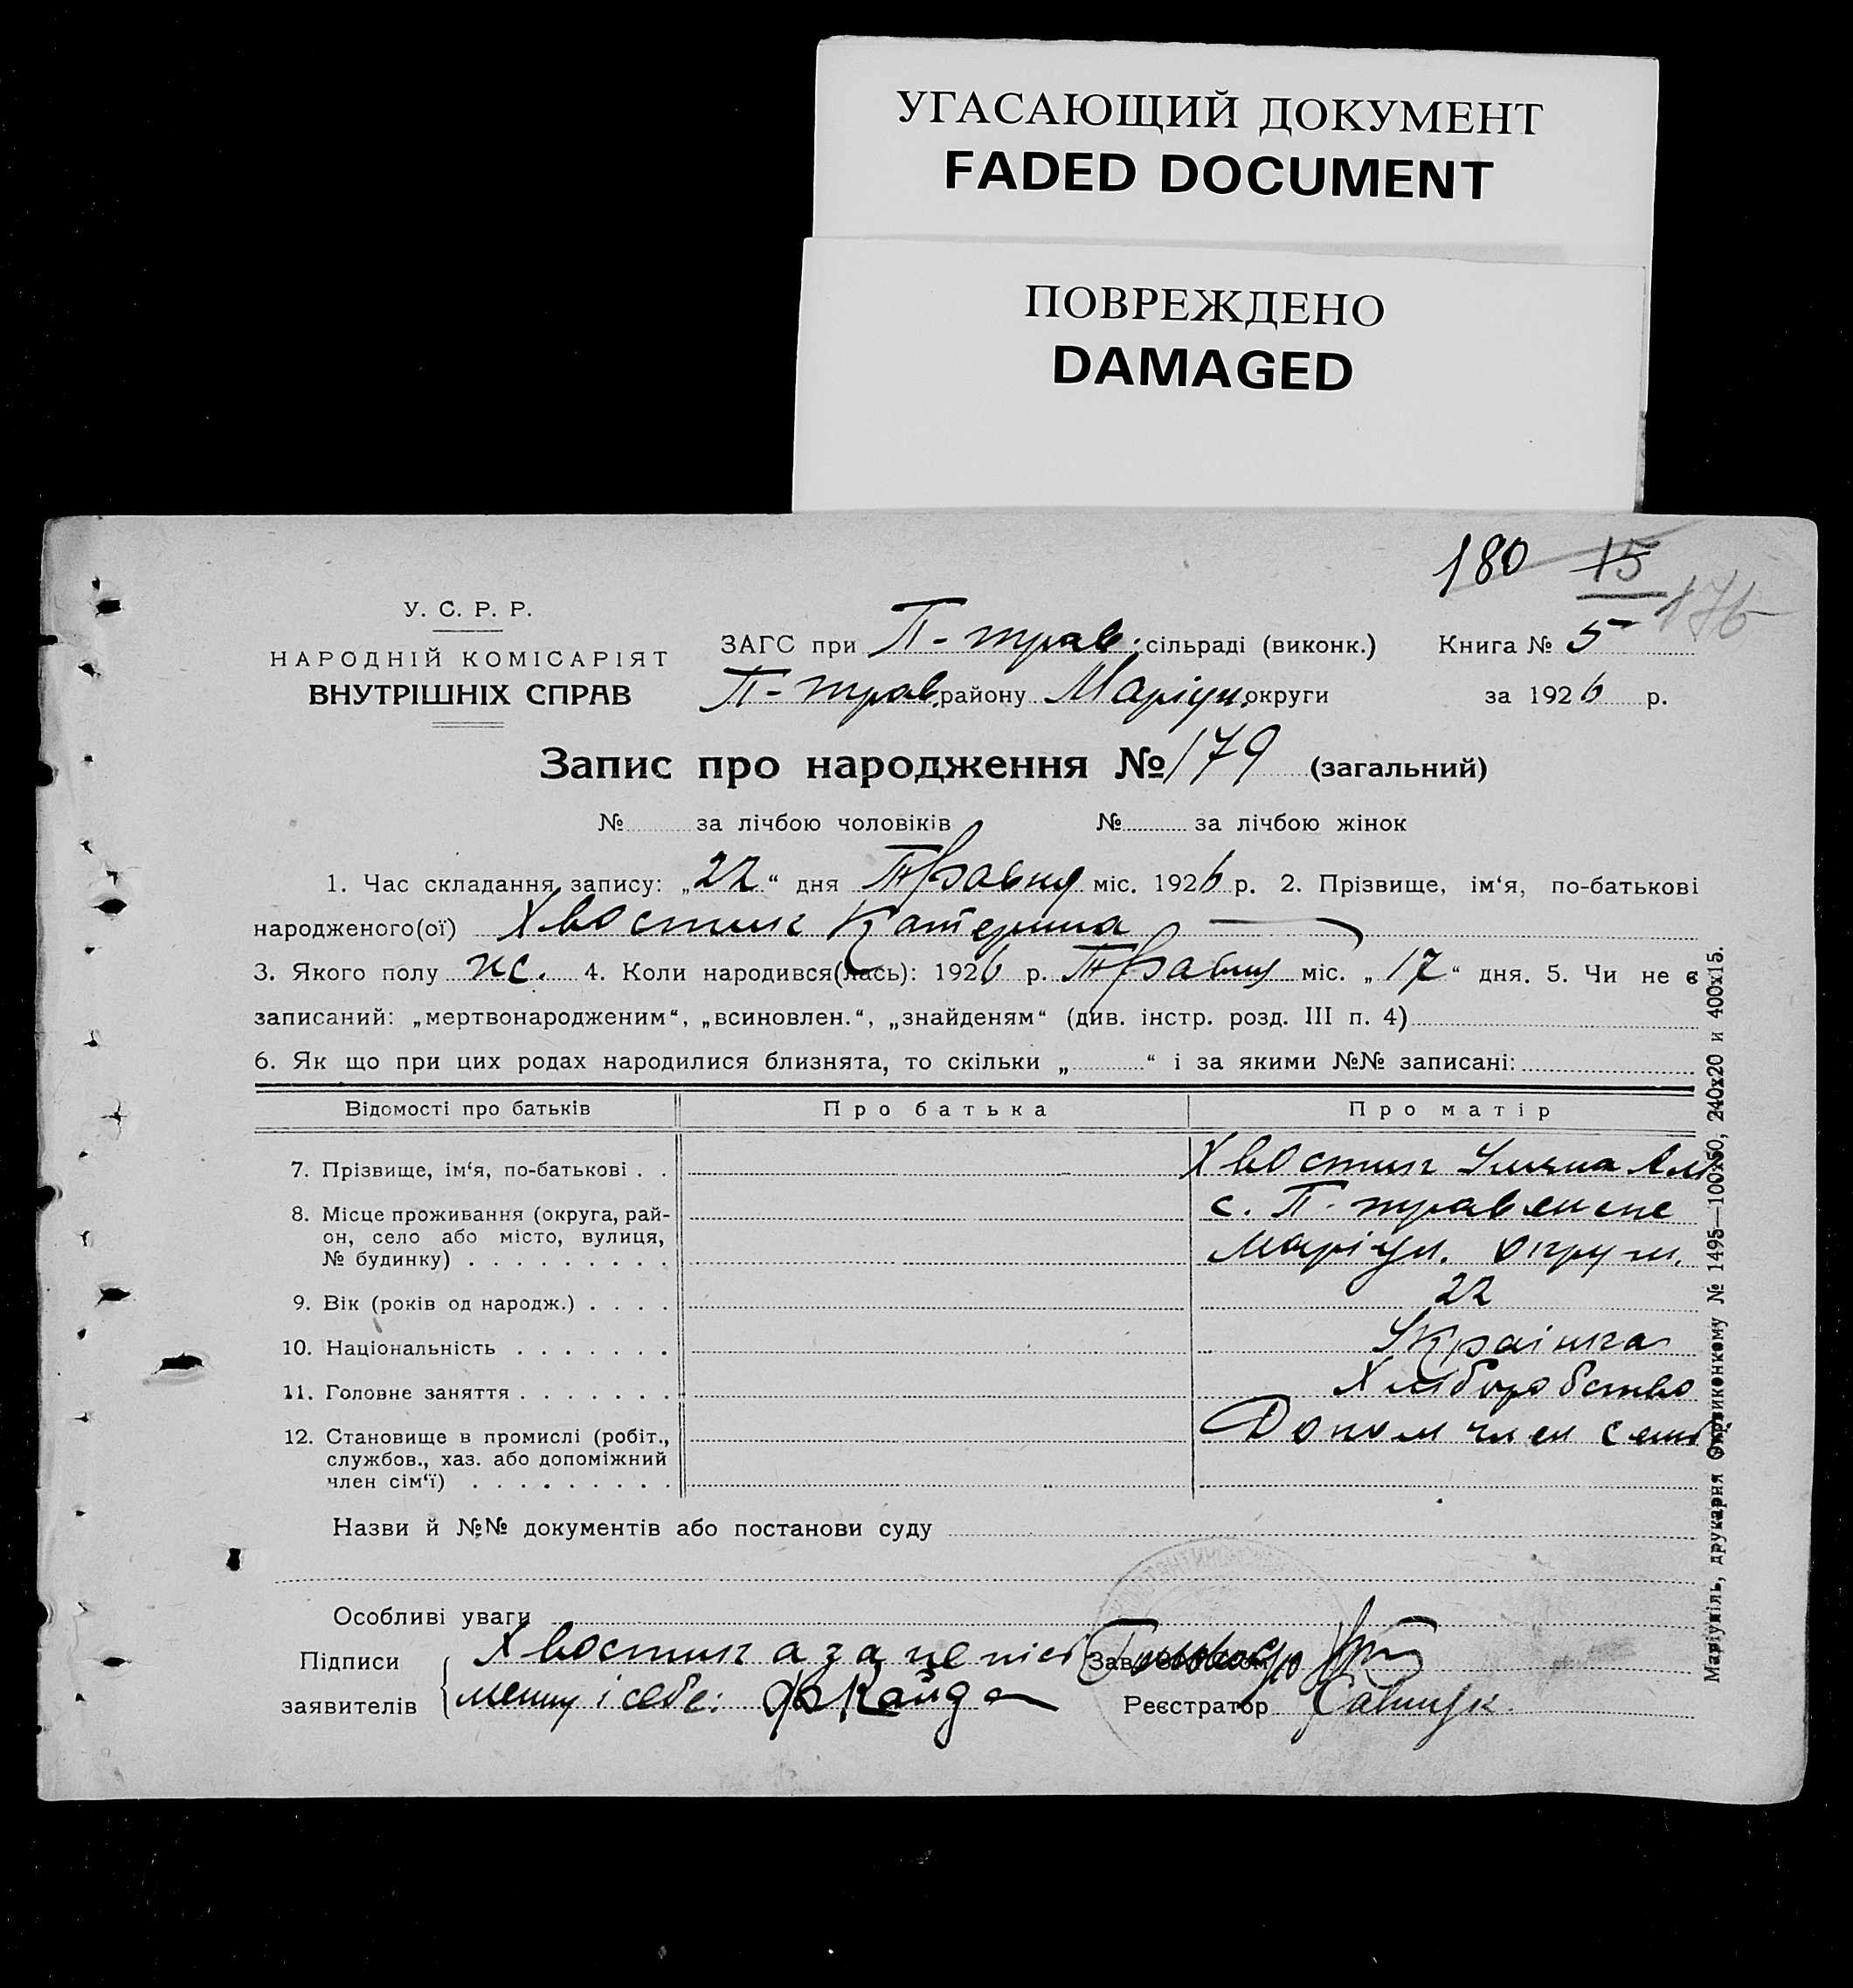 УГАСАЮЩИЙ ДОКУМЕНТ
FADED DOCUMENT
ПОВРЕЖДЕНО
DAMAGED
180 15 176
У. С. Р. Р.
НАРОДНІЙ КОМІСАРІЯТ
ВНУТРІШНІХ СПРАВ
ЗАГС при П-трав. сільраді (виконк.) Книга № 5
П-трав. району Маріуп. округи за 1926 р.
Запис про народження № 179 (загальний)
№ за лічбою чоловіків № за лічбою жінок
1. Час складання запису: „22“ дня Травня міс. 1926 р. 2. Прізвище, ім‘я, по-батькові
народженого(ої) Хвостик Катерина
3. Якого полу жс. 4. Коли народився(лась): 1926 р. Травня міс. „17“ дня. 5. Чи не є
записаний: „мертвонародженим“, „всиновлен.“, „знайденям“ (див. інстр. розд. III п. 4)
6. Як що при цих родах народилися близнята, то скільки „ “ і за якими №№ записані:
Відомості про батьків Про батька Про матір
7. Прізвище, ім‘я, по-батькові . . Хвостик
8. Місце проживання (округа, рай- с. П-травенене
он, село або місто, вулиця,
№ будинку) . . . . . . . . . Маріуп. округи.
9. Вік (років од народж.) . . . . 22
10. Національність . . . . . . . Українка
11. Головне заняття . . . . . . . Хліборобство
12. Становище в промислі (робіт., Допом член семї
службов., хаз. або допоміжний
член сім‘ї) . . . . . . . . .
Назви й №№ документів або постанови суду
Особливі уваги
Підписи Хвостик а за неписі Зав
заявителів менну і себе: Кайда Реєстратор Савчук
Маріупіль, друкарня Окрвиконкому № 1495—100х50, 240х20 и 400х15.